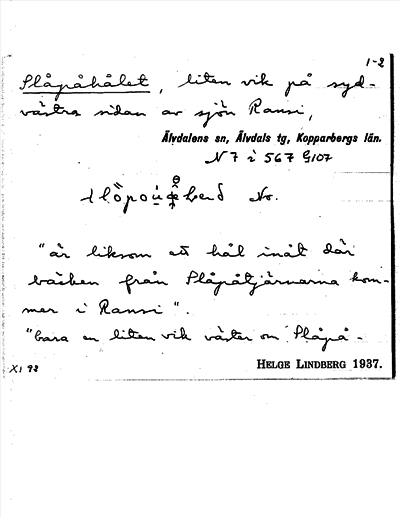 1-2
Slåpåhålet, liten vik på syd-
västra sidan av sjön Ransi,
Älvdalens sn, Älvdals tg, Kopparbergs län.
N 7 i 567 G107
No.
"är liksom ett hål inåt där
bäcken från Slåpåtjärnarna kom-
mer i Ransi".
"bara en liten vik väster om Slåpå-
HELGE LINDBERG 1937.
XI 93